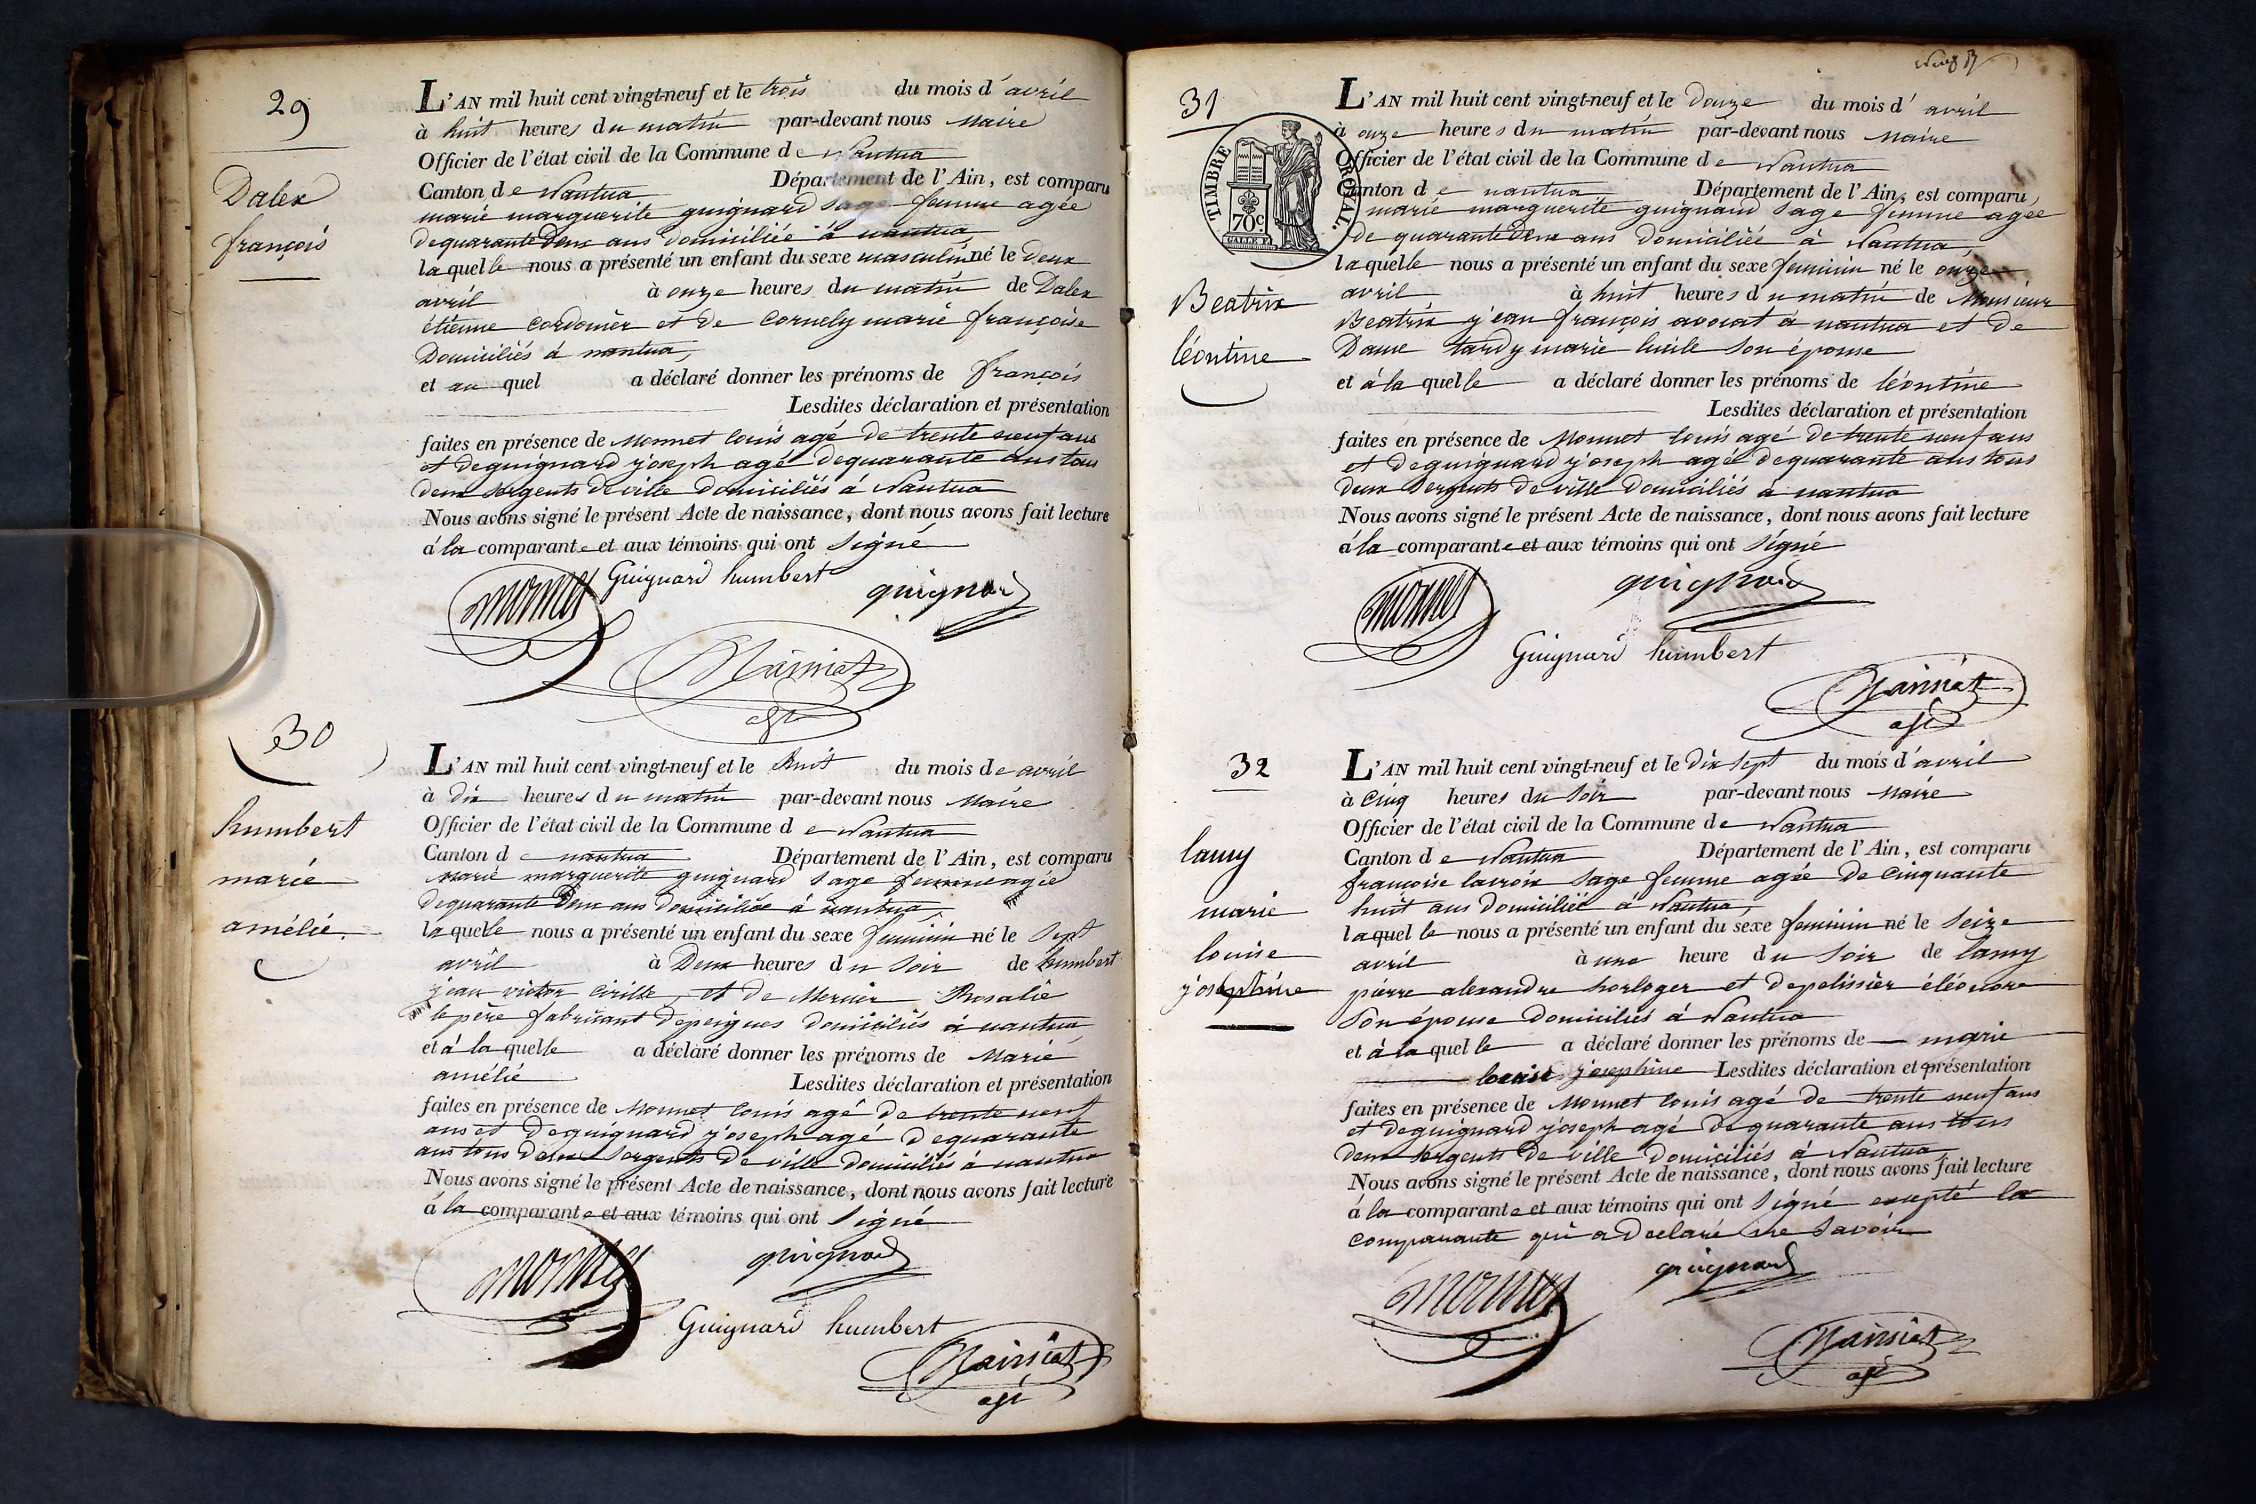 29
Dalex
françois
L'AN mil huit cent vingt-neuf et le trois du mois d'avril
à huit heures du matin par-devant nous Maire
Officier de l'état civil de la Commune de Nantua
Canton de Nantua Département de l'Ain, est comparu
marie marguerite guignard sage femme agée
de quarante Deux ans domiciliée à nantua
laquelle nous a présenté un enfant du sexe masculin né le Deux
avril à onze heures du matin de Dalex
étienne cordonier et de Cornely marie françoise
Domiciliés à nantua
et au quel a déclaré donner les prénoms de françois
Lesdites déclaration et présentation
faites en présence de Monnet louis agé de trente neuf ans
et de guignard joseph agé de quarante ans tous
deux sergents de ville domiciliés à Nantua
Nous avons signé le présent Acte de naissance, dont nous avons fait lecture
à la comparante et aux témoins qui ont signé
Guignard humbert
monnet guignard
30
humbert
marie
amélie
L'AN mil huit cent vingt-neuf et le huit du mois de avril
à Dix heures du matin par-devant nous Maire
Officier de l'état civil de la Commune de Nantua
Canton de nantua Département de l'Ain, est comparu
marie marguerite guignard sage femme agée
de quarante Deux ans domiciliée à nantua
laquelle nous a présenté un enfant du sexe feminin né le Sept
avril à Deux heures du soir de humbert
jean victor cirille et de Mercier Rosalie
le père fabricant de peignes domiciliés à nantua
et à la quelle a déclaré donner les prénoms de Marie
amélie Lesdites déclaration et présentation
faites en présence de Monnet louis agé de trente neuf
ans et de guignard joseph agé de quarante
ans tous deux sergents de ville domiciliés à nantua
Nous avons signé le présent Acte de naissance, dont nous avons fait lecture
à la comparante et aux témoins qui ont signé
monnet guignard
Guignard humbert
31
TIMBRE ROYAL.
70c.
Beatrix
léontine
L'AN mil huit cent vingt-neuf et le Douze du mois d'avril
à onze heures du matin par-devant nous Maire
Officier de l'état civil de la Commune de Nantua
Canton de nantua Département de l'Ain, est comparu
marie marguerite guignard sage femme agée
de quarante Deux ans domiciliée à Nantua
laquelle nous a présenté un enfant du sexe feminin né le onze
avril à huit heures du matin de Monsieur
Beatrix jean françois avocat à nantua et de
Dame tardy marie lucile son épouse
et à la quelle a déclaré donner les prénoms de léontine
Lesdites déclaration et présentation
faites en présence de Monnet louis agé de trente neuf ans
et de guignard joseph agée de quarante ans tous
deux sergents de ville domiciliés à nantua
Nous avons signé le présent Acte de naissance, dont nous avons fait lecture
à la comparante et aux témoins qui ont signé
monnet guignard
Guignard humbert
32
lamy
marie
louise
joséphine
L'AN mil huit cent vingt-neuf et le dix sept du mois d'avril
à cinq heures du soir par-devant nous Maire
Officier de l'état civil de la Commune de Nantua
Canton de Nantua Département de l'Ain, est comparu
françoise lacroix sage femme agée de cinquante
huit ans domiciliée à Nantua
laquelle nous a présenté un enfant du sexe feminin né le Seize
avril à une heure du soir de lamy
pierre alexandre horloger et de pelissier éléonore
Son épouse domiciliés à Nantua
et à la quelle a déclaré donner les prénoms de marie
louise josephine Lesdites déclaration et présentation
faites en présence de Monnet louis agé de trente neuf ans
et de guignard joseph agé de quarante ans tous
deux sergents de ville domiciliés à Nantua
Nous avons signé le présent Acte de naissance, dont nous avons fait lecture
à la comparante et aux témoins qui ont signé excepté la
comparante qui a declaré ne savoir
monnet guignard